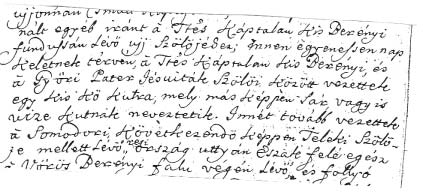 ujjonnan
nált egyéb iránt à Ttes Káptalan Kis Berényi
fundussán Lévö uj Szölöjében; Innen egyenessen nap
Keletnek térvén, à Ttes Káptalan Kis Berényi, és
à Györi Pater Jésuiták Szölöi Között vezettek
egy Kis Kö Kutra, mely más Képpen Sár vagy is
vize Kutnak neveztetik. Innét tovább vezettek
à Somodori, Következendö Képpen Teleki Szölö-
je mellett Lévö Ország uttyán Eszak felé egész
Vörös Berényi falu végén Lévö, és folyó